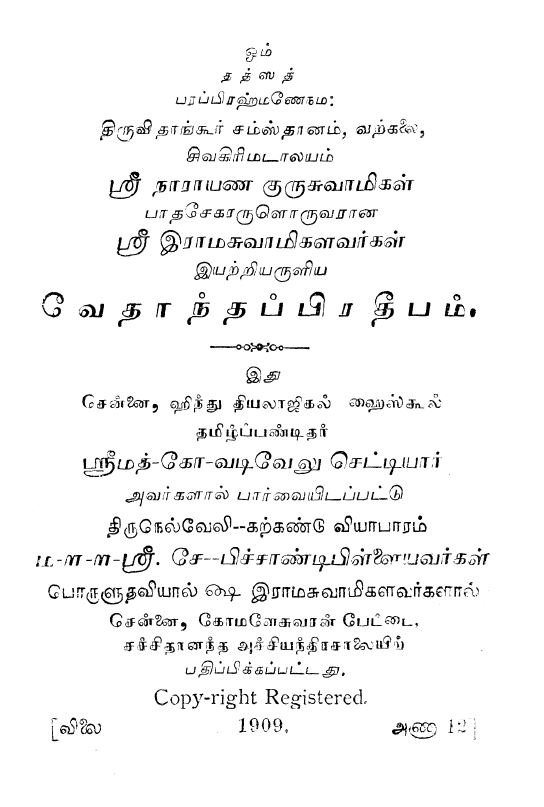 ஓம்
தத்ஸத்
பரப்பிரஹ்மணேநம:
திருவிதாங்கூர் சம்ஸ்தானம், வற்கலை,
சிவகிரிமடாலயம்
ஸ்ரீ நாராயண குருசுவாமிகள்
பாதசேகாருளொருவரான
ஸ்ரீ இராமசுவாமிகளவர்கள்
இயற்றியருளிய
வேதாந்தப்பிரதீபம்.
இது
சென்னை, ஹிந்து தியலாஜிகல் ஹைஸ்கூல்
தமிழ்ப்பண்டிதர்
ஸ்ரீமத்-கோ-வடிவேலு செட்டியார்
அவர்களால் பார்வையிடப்பட்டு
திருநெல்வேலி--கற்கண்டு வியாபாரம்
ம-ள-ள-ஸ்ரீ. சே--பிச்சாண்டிபிள்ளையவர்கள்
பொருளுதவியால் ௸ இராமசுவாமிகளவர்களால்
சென்னை, கோமளேசுவரன் பேட்டை,
சச்சிதானந்த அச்சியந்திரசாலையிற்
பதிப்பிக்கப்பட்டது.
Copy-right Registered.
[விலை 1909. அணா 12]